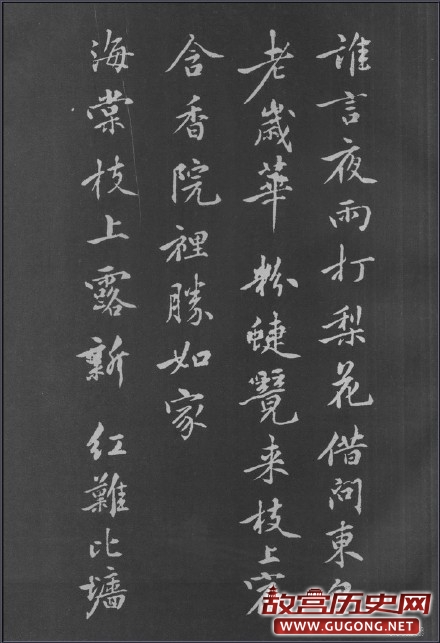 誰言夜雨打梨花借問東
老歲華粉蜨覽来枝上
含香院裡勝如家
海棠枝上露新紅難比墻
故宫历史网
WWW.GUGONG.NET